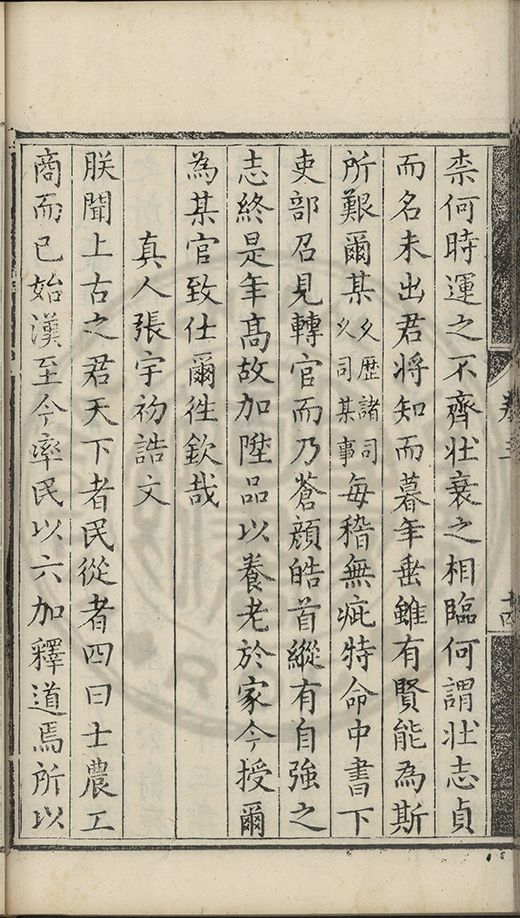 柰何時運之不齊壯衰之相臨何謂壯志貞
而名未出君将知而暮年垂雖有賢能為斯
所艱爾某久歷諸司乂司某事每稽無疵特命中書下
吏部召見轉官而乃蒼顔皓首縱有自強之
志終是年髙故加陞品以養老於家今授爾
為某官致仕爾徃欽哉
真人張宇初誥文
朕聞上古之君天下者民從者四曰士農工
商而已始漢至今率民以六加釋道焉所以